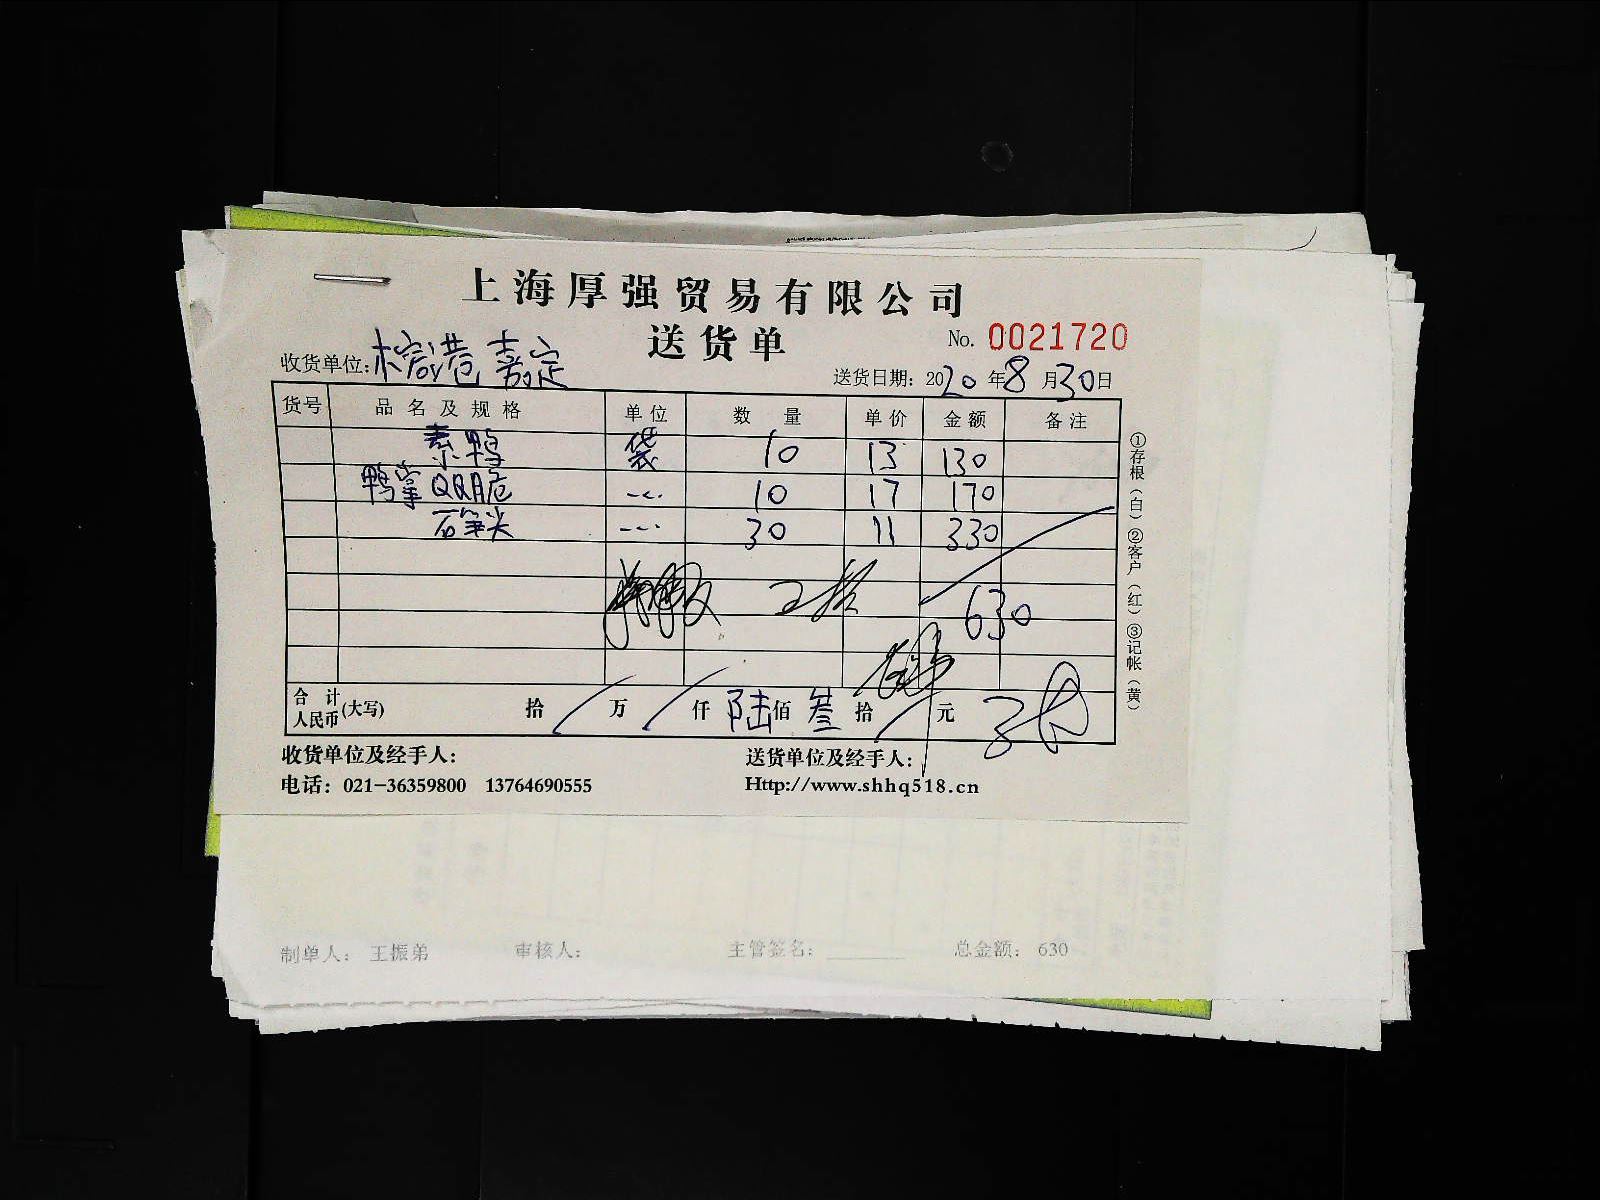 上海厚强贸易有限公司
送货单
No. 0021720
收货单位：榕港 嘉定
送货日期：2020年8月30日
货号 品名及规格 单位 数量 单价 金额 备注
素鸭 袋 10 13 130
鸭掌QQ脆 -〃- 10 17 170
石笋尖 -〃- 30 11 330
630
合计人民币(大写) 拾 / 万 / 仟 陆 佰 叁 拾 / 元
收货单位及经手人：
送货单位及经手人：
电话：021-36359800 13764690555
Http://www.shhq518.cn
①存根（白）②客户（红）③记帐（黄）
制单人： 王振弟 审核人： 主管签名：______ 总金额： 630